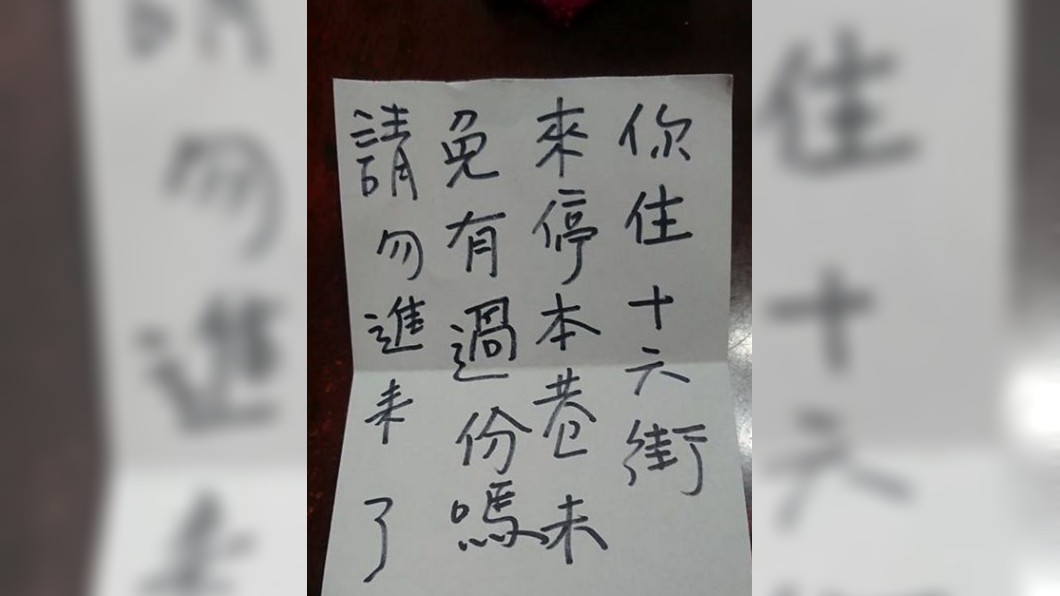 你住十六街
來停本巷未
免有過份嗎
請勿進来了